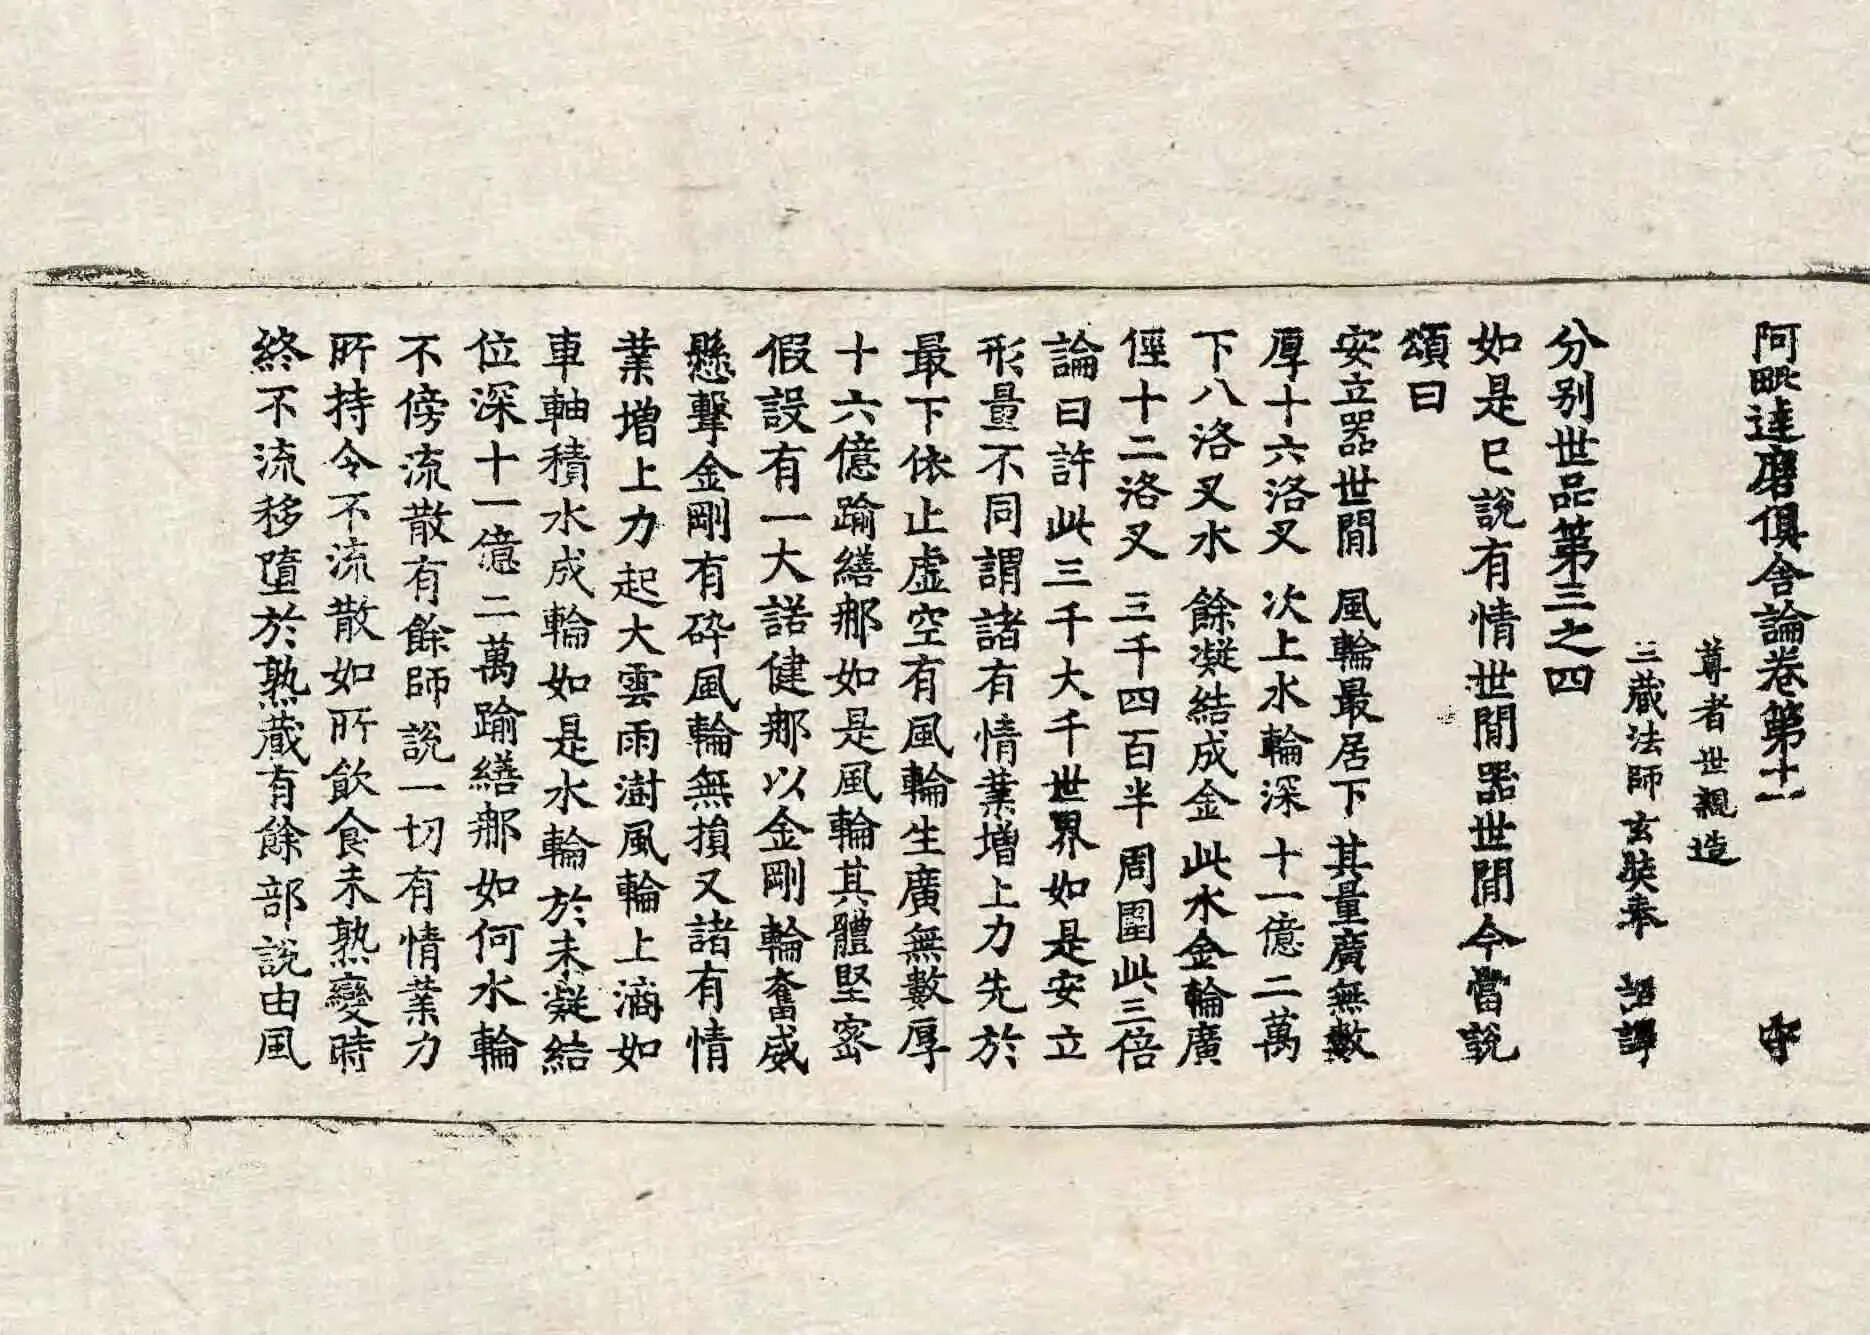 阿毗達磨俱舍論卷第十一
尊者世親造
三藏法師玄奘奉 詔譯
分別世品第三之四
如是已說有情世間器世間今當說
頌曰
安立器世間 風輪最居下 其量廣無數
厚十六洛叉 次上水輪深 十一億二萬
下八洛叉水 餘凝結成金 此水金輪廣
徑十二洛叉 三千四百半 周圍此三倍
論曰許此三千大千世界如是安立
形量不同謂諸有情業增上力先於
最下依止虛空有風輪生廣無數厚
十六億踰繕那如是風輪其體堅密
假設有一大諾健那以金剛輪奮威
懸擊金剛有碎風輪無損又諸有情
業增上力起大雲雨澍風輪上滴如
車軸積水成輪如是水輪於未凝結
位深十一億二萬踰繕那如何水輪
不傍流散有餘師說一切有情業力
所持令不流散如所飲食未熟變時
終不流移墮於熟藏有餘部說由風